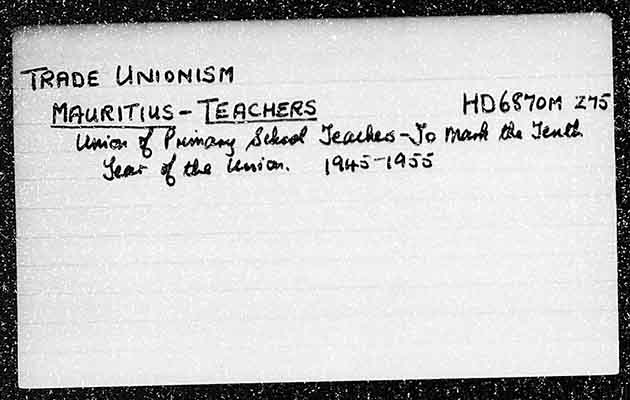 TRADE UNIONISM
MAURITIUS - TEACHERS HD6870M Z75
Union of Primary School Teachers - To Mark the Tenth
Year of the Union. 1945-1955